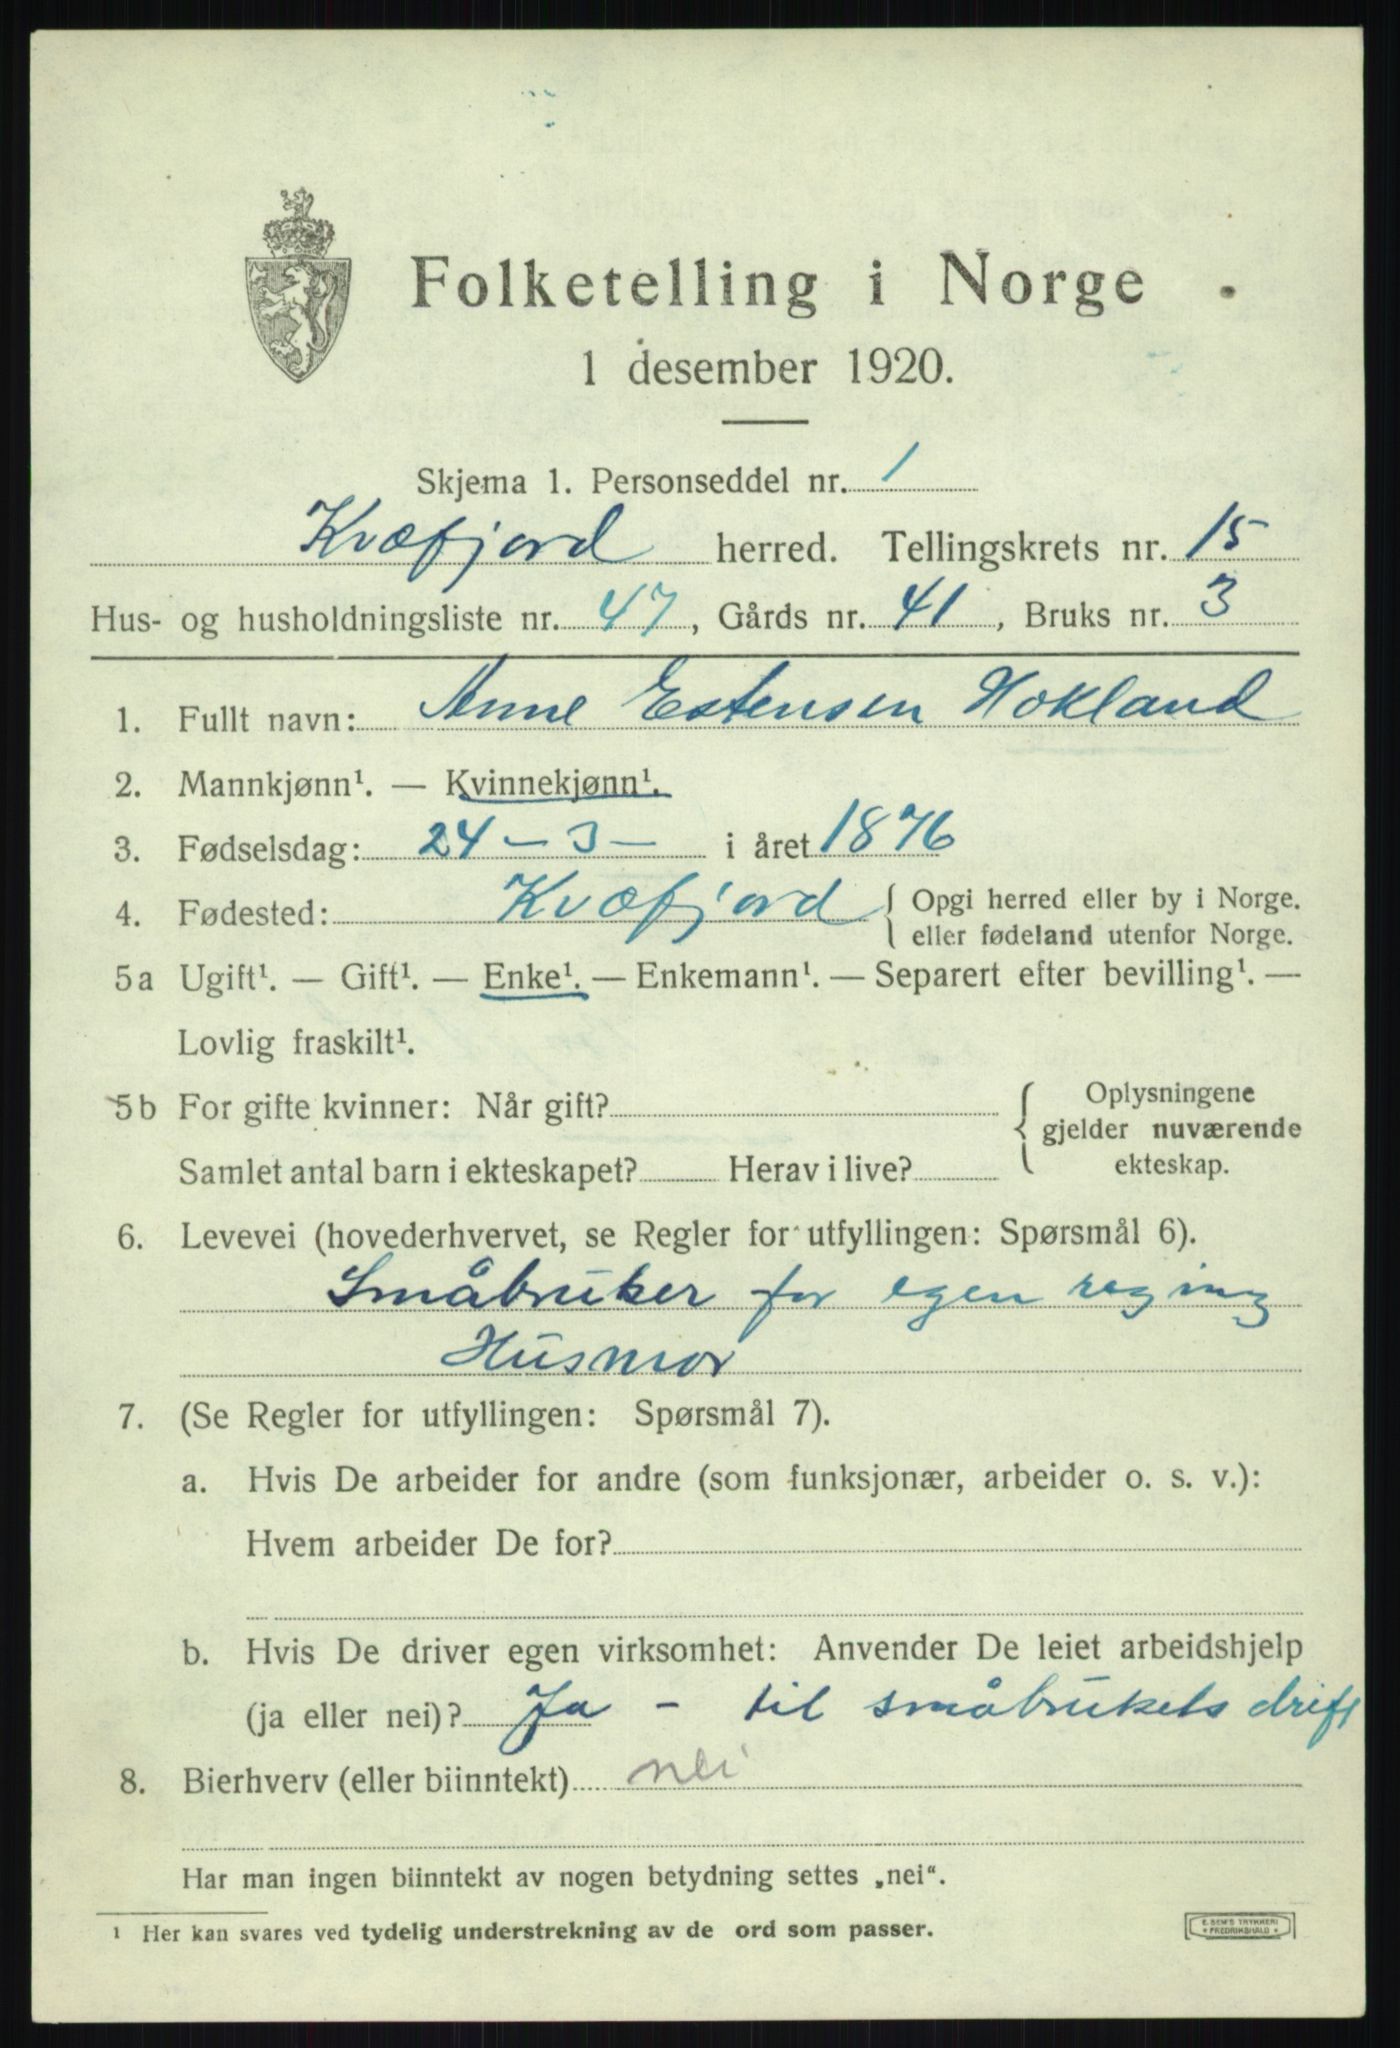 Folketelling i Norge
1 desember 1920.
Skjema 1. Personseddel nr. 1
Kvæfjord herred. Tellingskrets nr. 15
Hus- og husholdningsliste nr. 47, Gårds nr. 41, Bruks nr. 3
1. Fullt navn: Anne Estensen Hokland
2. Mannkjønn¹. — Kvinnekjønn¹.
3. Fødselsdag: 24 – 3 – i året 1876
4. Fødested: Kvæfjord { Opgi herred eller by i Norge.
eller fødeland utenfor Norge.
5a Ugift¹. — Gift¹. — Enke¹. — Enkemann¹. — Separert efter bevilling¹. —
Lovlig fraskilt¹.
5b For gifte kvinner: Når gift? { Oplysningene
gjelder nuværende
Samlet antal barn i ekteskapet? Herav i live? ekteskap.
6. Levevei (hovederhvervet, se Regler for utfyllingen: Spørsmål 6).
Småbruker for egen regning
Husmor
7. (Se Regler for utfyllingen: Spørsmål 7).
a. Hvis De arbeider for andre (som funksjonær, arbeider o. s. v.):
Hvem arbeider De for?
b. Hvis De driver egen virksomhet: Anvender De leiet arbeidshjelp
(ja eller nei)? Ja – til småbrukets drift
8. Bierhverv (eller biinntekt) nei
Har man ingen biinntekt av nogen betydning settes „nei“.
¹ Her kan svares ved tydelig understrekning av de ord som passer.
E. SEM'S TRYKKERI
* FREDRIKSHALD *